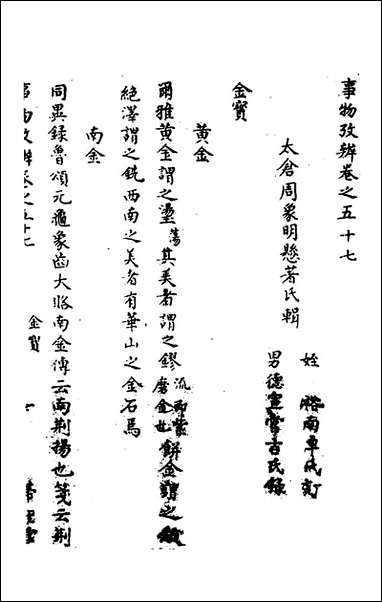 事物攷辨卷之五十七
太倉周象明懸著氏輯
姪 南卓氏訂
男德宣 氏錄
金寶
黃金
爾雅黃金謂之璗蕩其美者謂之鏐流 磨金也餅金謂之
絕澤謂之銑西南之美者有華山之金石焉
南金
同異錄魯頌元龜象齒大賂南金傳云南荆揚也箋云荆
事物攷辨卷之五十七
金寶
一